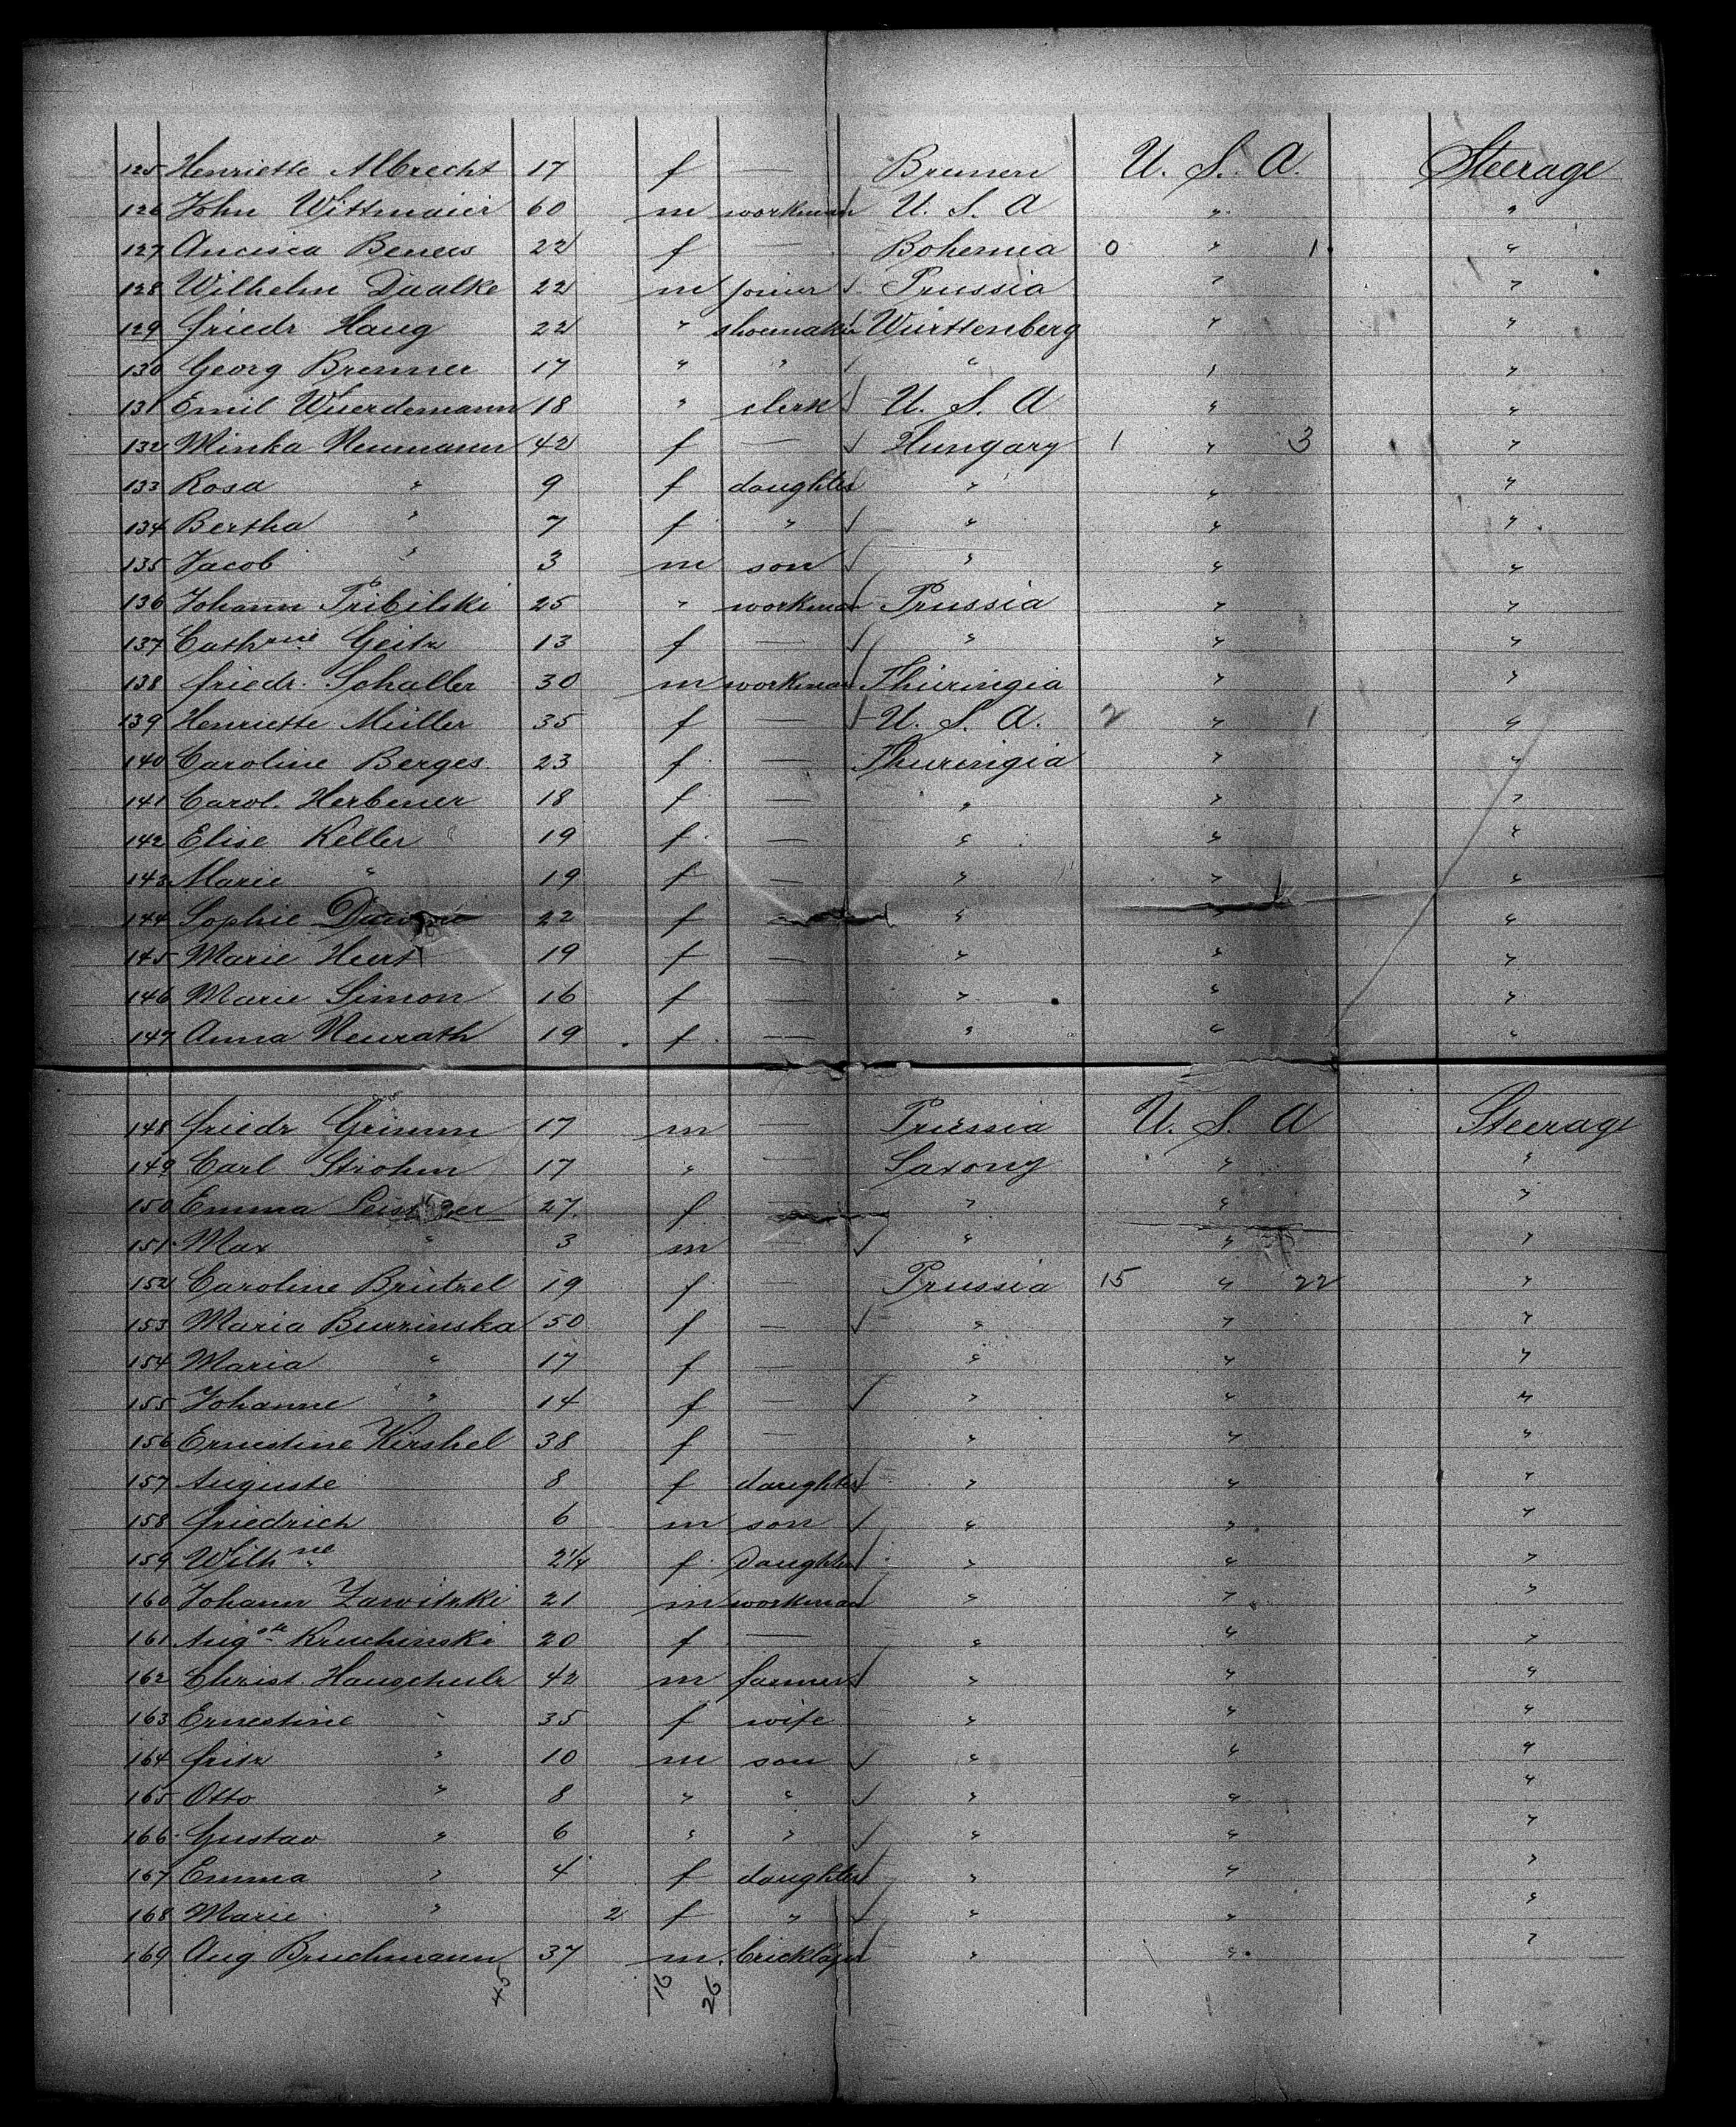 125 Henriette Albrecht 17 f — Bremen U. S. A. Steerage
126 John Wittmaier 60 m workman U. S. A " "
127 Beness 22 f — Bohemia 0 " 1 "
128 Wilhelm Daalke 22 m joiner Prussia " "
129 Friedr. Haug 22 " shoemaker Württenberg " "
130 Georg Brenner 17 " " " " "
131 Emil Wuerdemann 18 " clerk U. S. A " "
132 Minka Neumann 42 f — Hungary 1 " 3 "
133 Rosa " 9 f daughter " " "
134 Bertha " 7 f " " " "
135 Jacob " 3 m son " " "
136 Johann Pribilski 25 " workman Prussia " "
137 Cathrne Geitz 13 f — " " "
138 Friedr. Schaller 30 m workman Thuringia " "
139 Henriette Müller 35 f — U. S. A. 2 " 1 "
140 Caroline Berges 23 f — Thuringia " "
141 Carol. Herbener 18 f — " " "
142 Elise Keller 19 f — " " "
143 Marie " 19 f — " " "
144 Sophie 22 f — " " "
145 Marie 19 f — " " "
146 Marie Simon 16 f — " " "
147 Anna Neurath 19 f — " " "
148 Friedr Grimm 17 m — Prussia U. S. A Steerage
149 Carl Strohm 17 " — Saxony " "
150 Emma 27 f — " " "
151 Max " 3 m — " " "
152 Caroline Brützel 19 f — Prussia 15 " 22 "
153 Maria Burzinska 50 f — " " "
154 Maria " 17 f — " " "
155 Johanne " 14 f — " " "
156 Ernestine Kirshel 38 f — " " "
157 Auguste 8 f daughter " " "
158 Friedrich 6 m son " " "
159 Wilhne 2 1/4 f Daughter " " "
160 Johann Zawitzki 21 m workman " " "
161 Augste Kruchinski 20 f — " " "
162 Christ. Hauschulz 42 m farmer " " "
163 Ernestine " 35 f wife " " "
164 Fritz " 10 m son " " "
165 Otto " 8 " " " " "
166 Gustav " 6 " " " " "
167 Emma " 4 f daughter " " "
168 Marie " 2 f " " " "
169 Aug. Bruchmann 37 m. bricklayer " " "
45 16 26